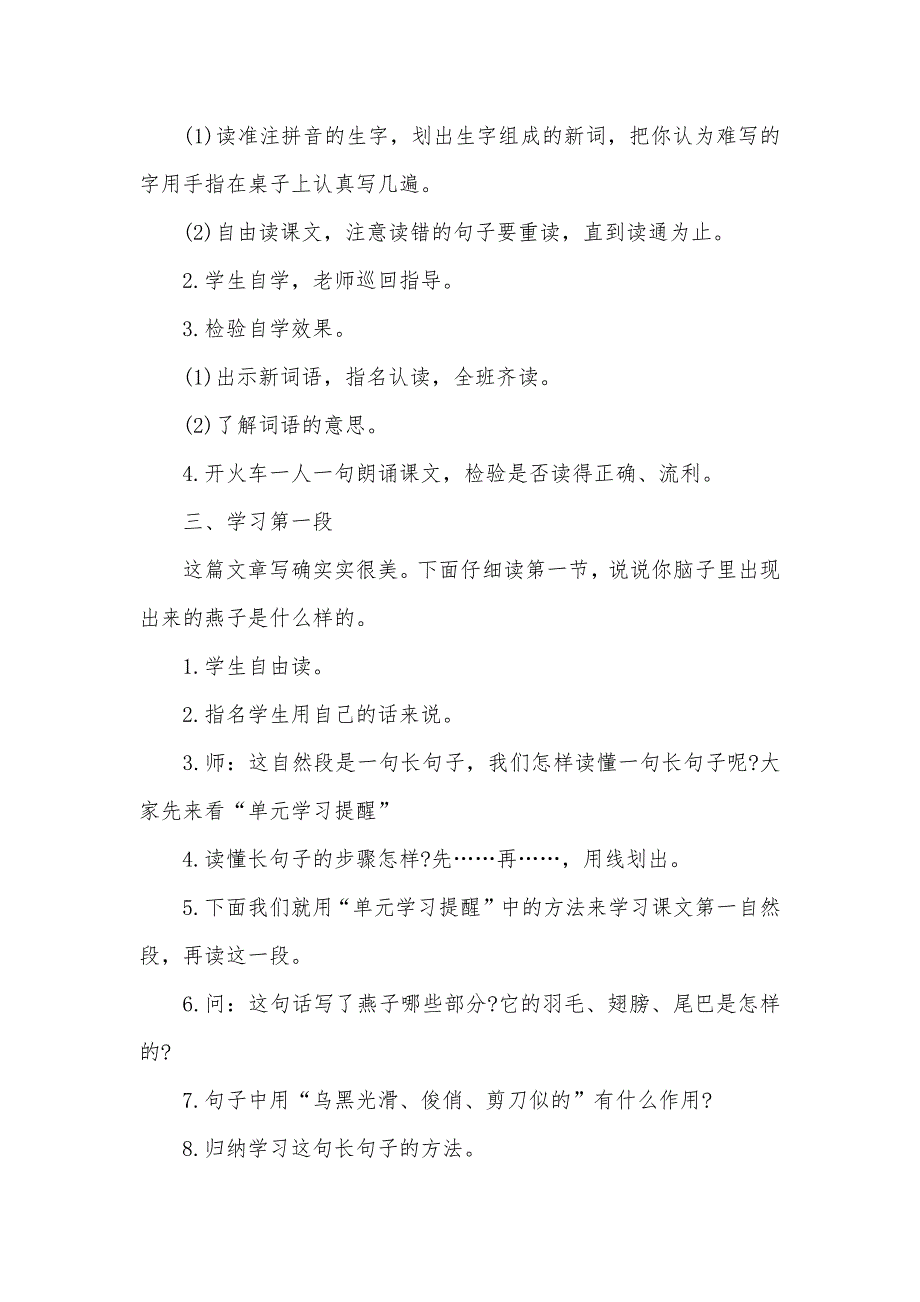 (1)读准注拼音的生字，划出生字组成的新词，把你认为难写的
字用手指在桌子上认真写几遍。
(2)自由读课文，注意读错的句子要重读，直到读通为止。
2.学生自学，老师巡回指导。
3.检验自学效果。
(1)出示新词语，指名认读，全班齐读。
(2)了解词语的意思。
4.开火车一人一句朗诵课文，检验是否读得正确、流利。
三、学习第一段
这篇文章写确实实很美。下面仔细读第一节，说说你脑子里出现
出来的燕子是什么样的。
1.学生自由读。
2.指名学生用自己的话来说。
3.师：这自然段是一句长句子，我们怎样读懂一句长句子呢?大
家先来看“单元学习提醒”
4.读懂长句子的步骤怎样?先……再……，用线划出。
5.下面我们就用“单元学习提醒”中的方法来学习课文第一自然
段，再读这一段。
6.问：这句话写了燕子哪些部分?它的羽毛、翅膀、尾巴是怎样
的?
7.句子中用“乌黑光滑、俊俏、剪刀似的”有什么作用?
8.归纳学习这句长句子的方法。